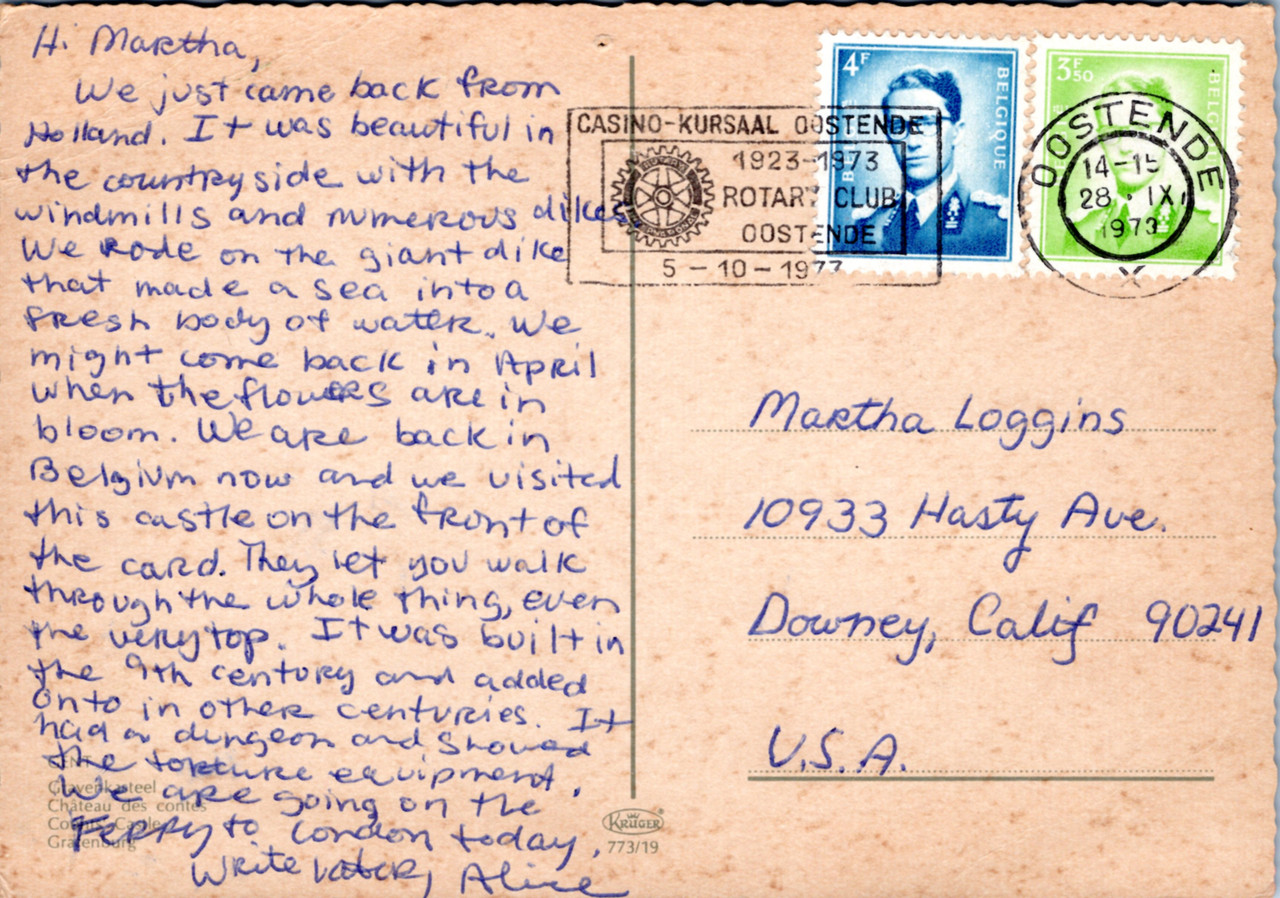 Hi Martha,
We just came back from
Holland. It was beautiful in
the countryside with the
windmills and numerous dikes
We rode on the giant dike
that made a sea into a
fresh body of water. We
might come back in April
when the flowers are in
bloom. We are back in
Belgium now and we visited
this castle on the front of
the card. They let you walk
through the whole thing, even
the very top. It was built in
the 9th century and added
onto in other centuries. It
had a dungeon and showed
the torture equipment.
We are going on the
Ferry to London today.
Write later, Alice
Gravenkasteel
Château des contes
Castle
Grafenburg
KRÜGER
773/19
CASINO-KURSAAL OOSTENDE
1923-1973
ROTARY CLUB
OOSTENDE
5-10-1973
4F
BELGIQUE
3F50
OOSTENDE
14-15
28 · IX
1973
X
Martha Loggins
10933 Hasty Ave.
Downey, Calif 90241
U.S.A.